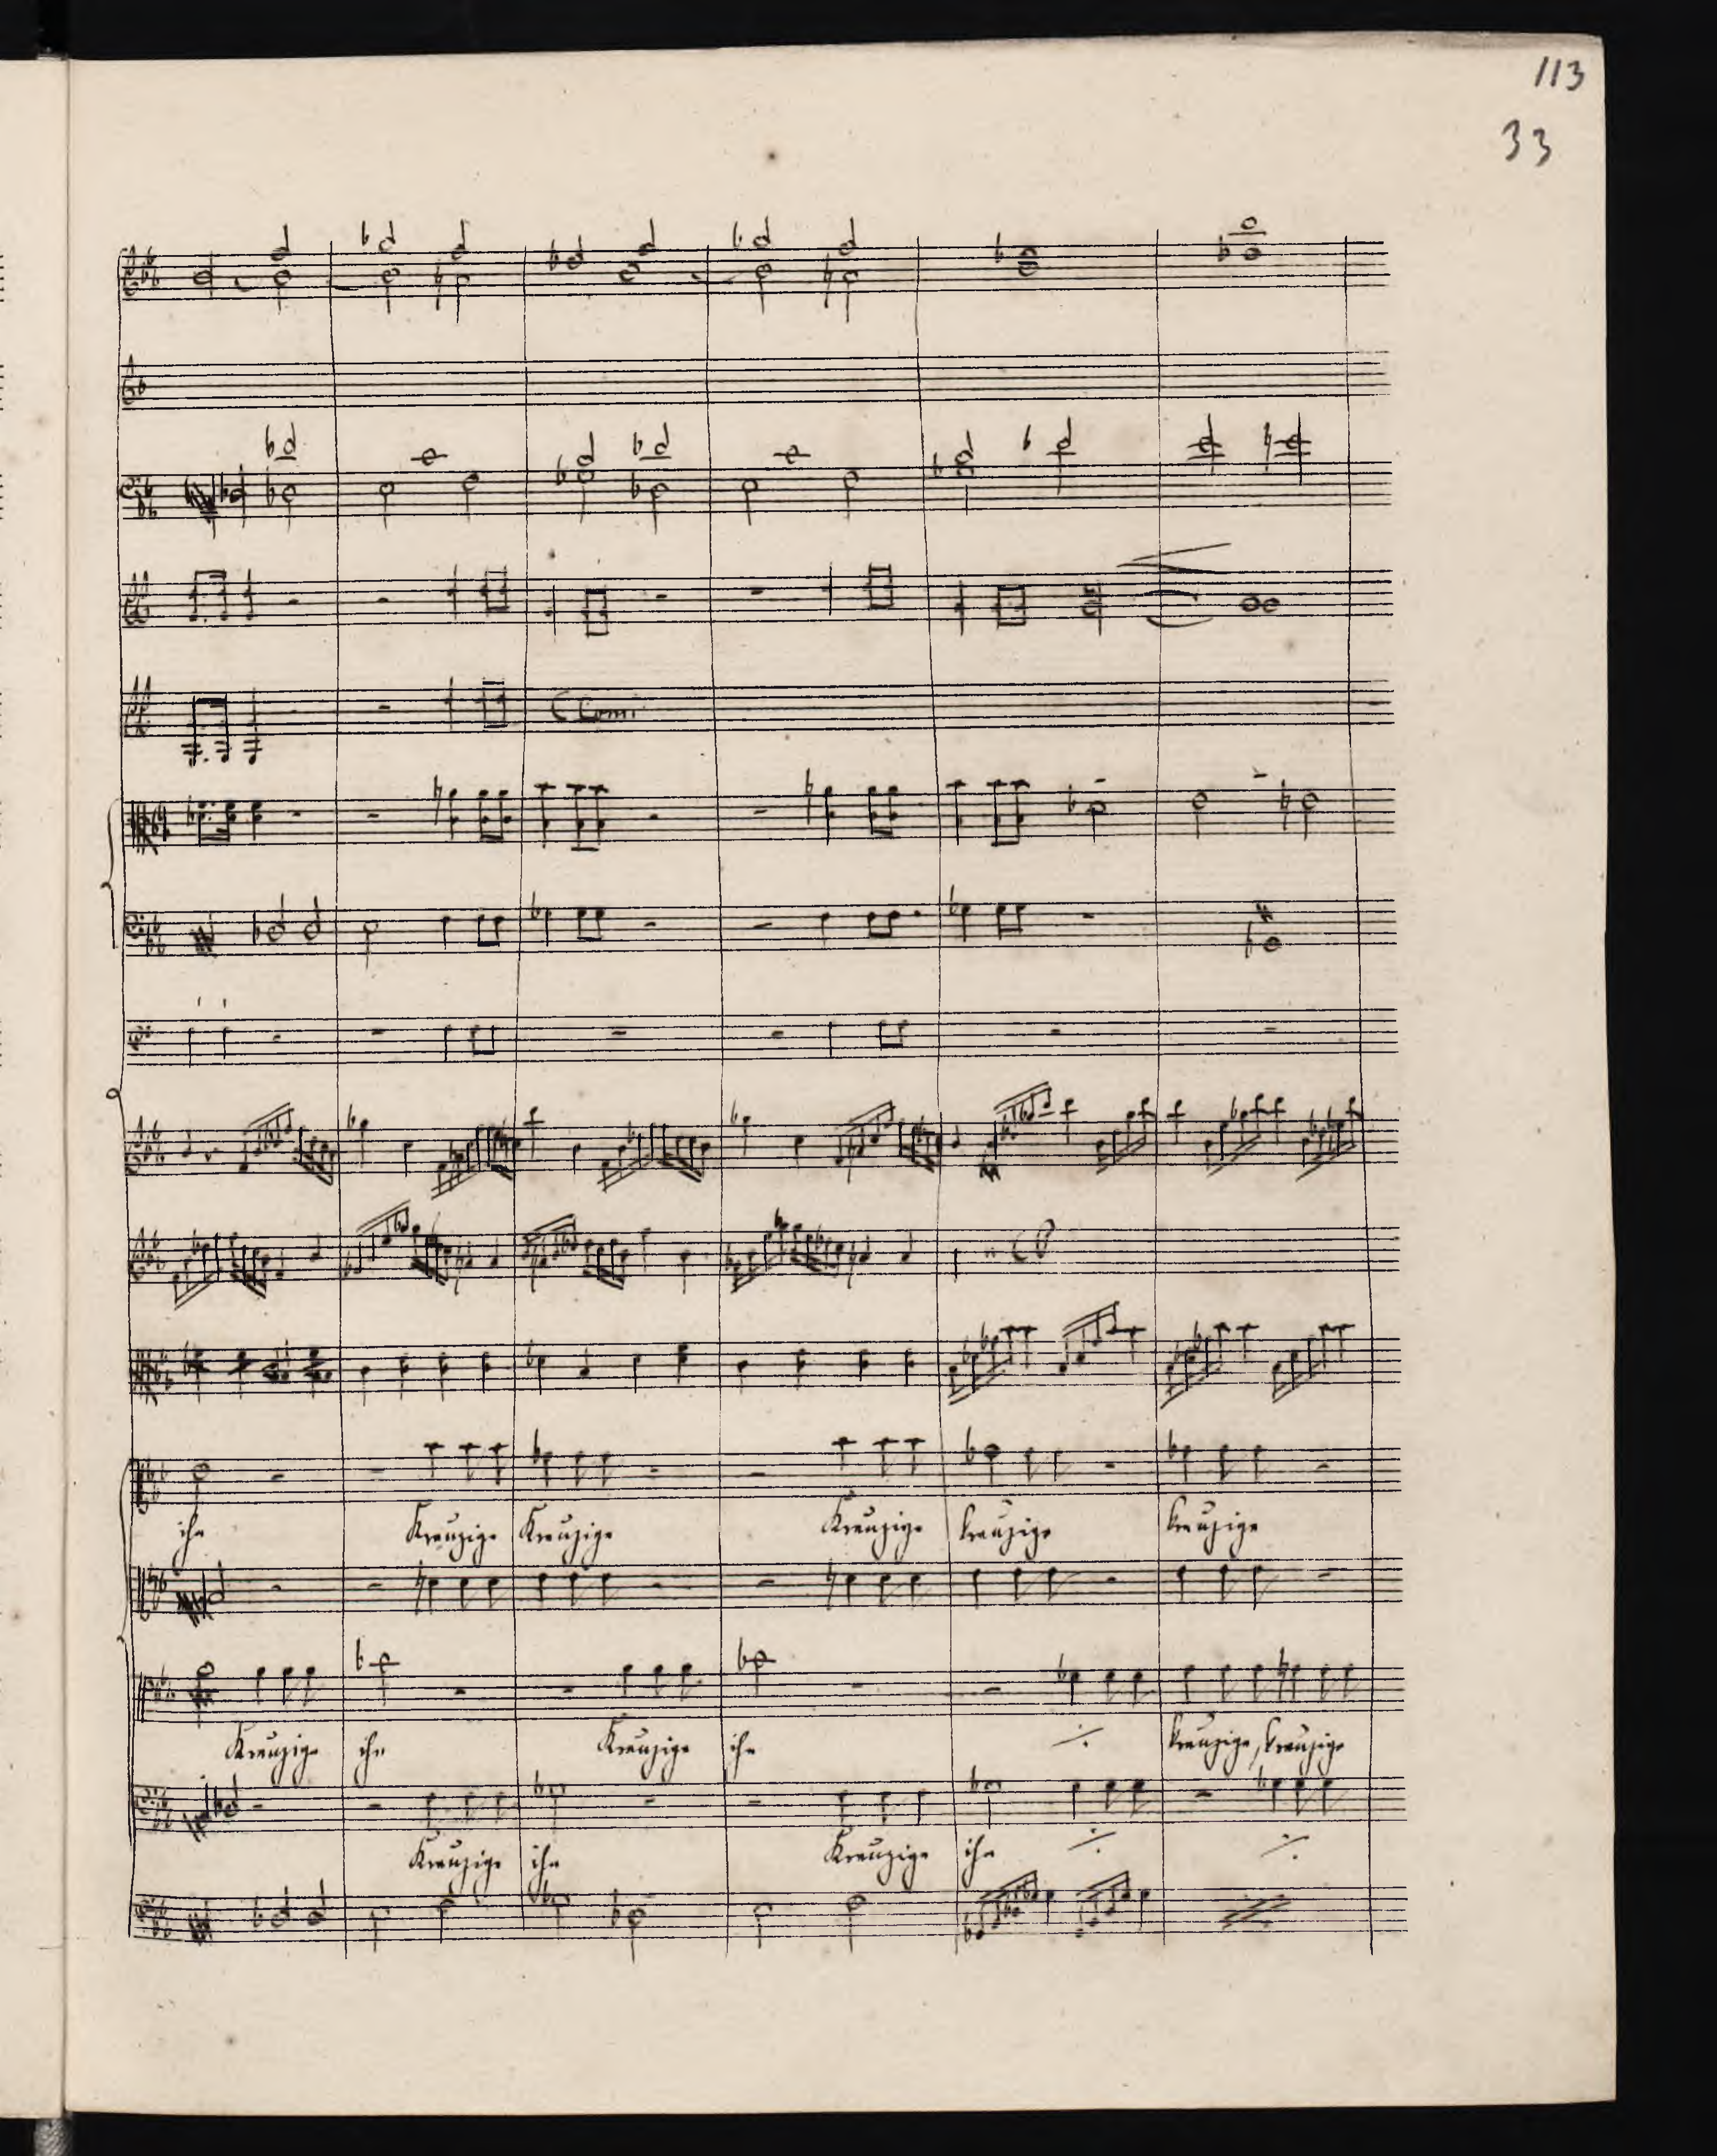 113
33
ihn Kreuzige Kreuzige Kreuzige kreuzige kreuzige
Kreuzige ihn Kreuzige ihn kreuzige, kreuzige
Kreuzige ihn Kreuzige ihn